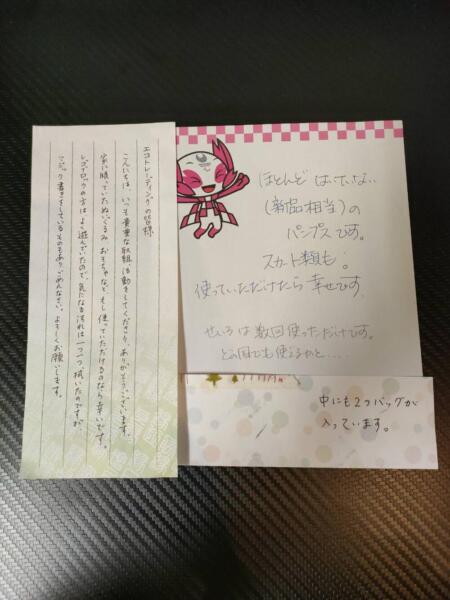 エコトレーディングの皆様
こんにちは。いつも貴重な取組、活動をしてくださり、ありがとうございます。
家に眠っていたぬいぐるみ、おもちゃなど、もし使っていただけるのなら幸いです。
レゴブロックの方はよく遊んでいたので、気になる汚れは一つ一つ拭いたのですが、
マジック書きをしているものもありごめんなさい。よろしくお願いします。
ほとんど はいていない
(新品相当)の
パンプスです。
スカート類も!
使っていただけたら幸せです.
せいろは数回使っただけです。
どの国でも使えるかと.....
中にも2つバッグが
入っています。